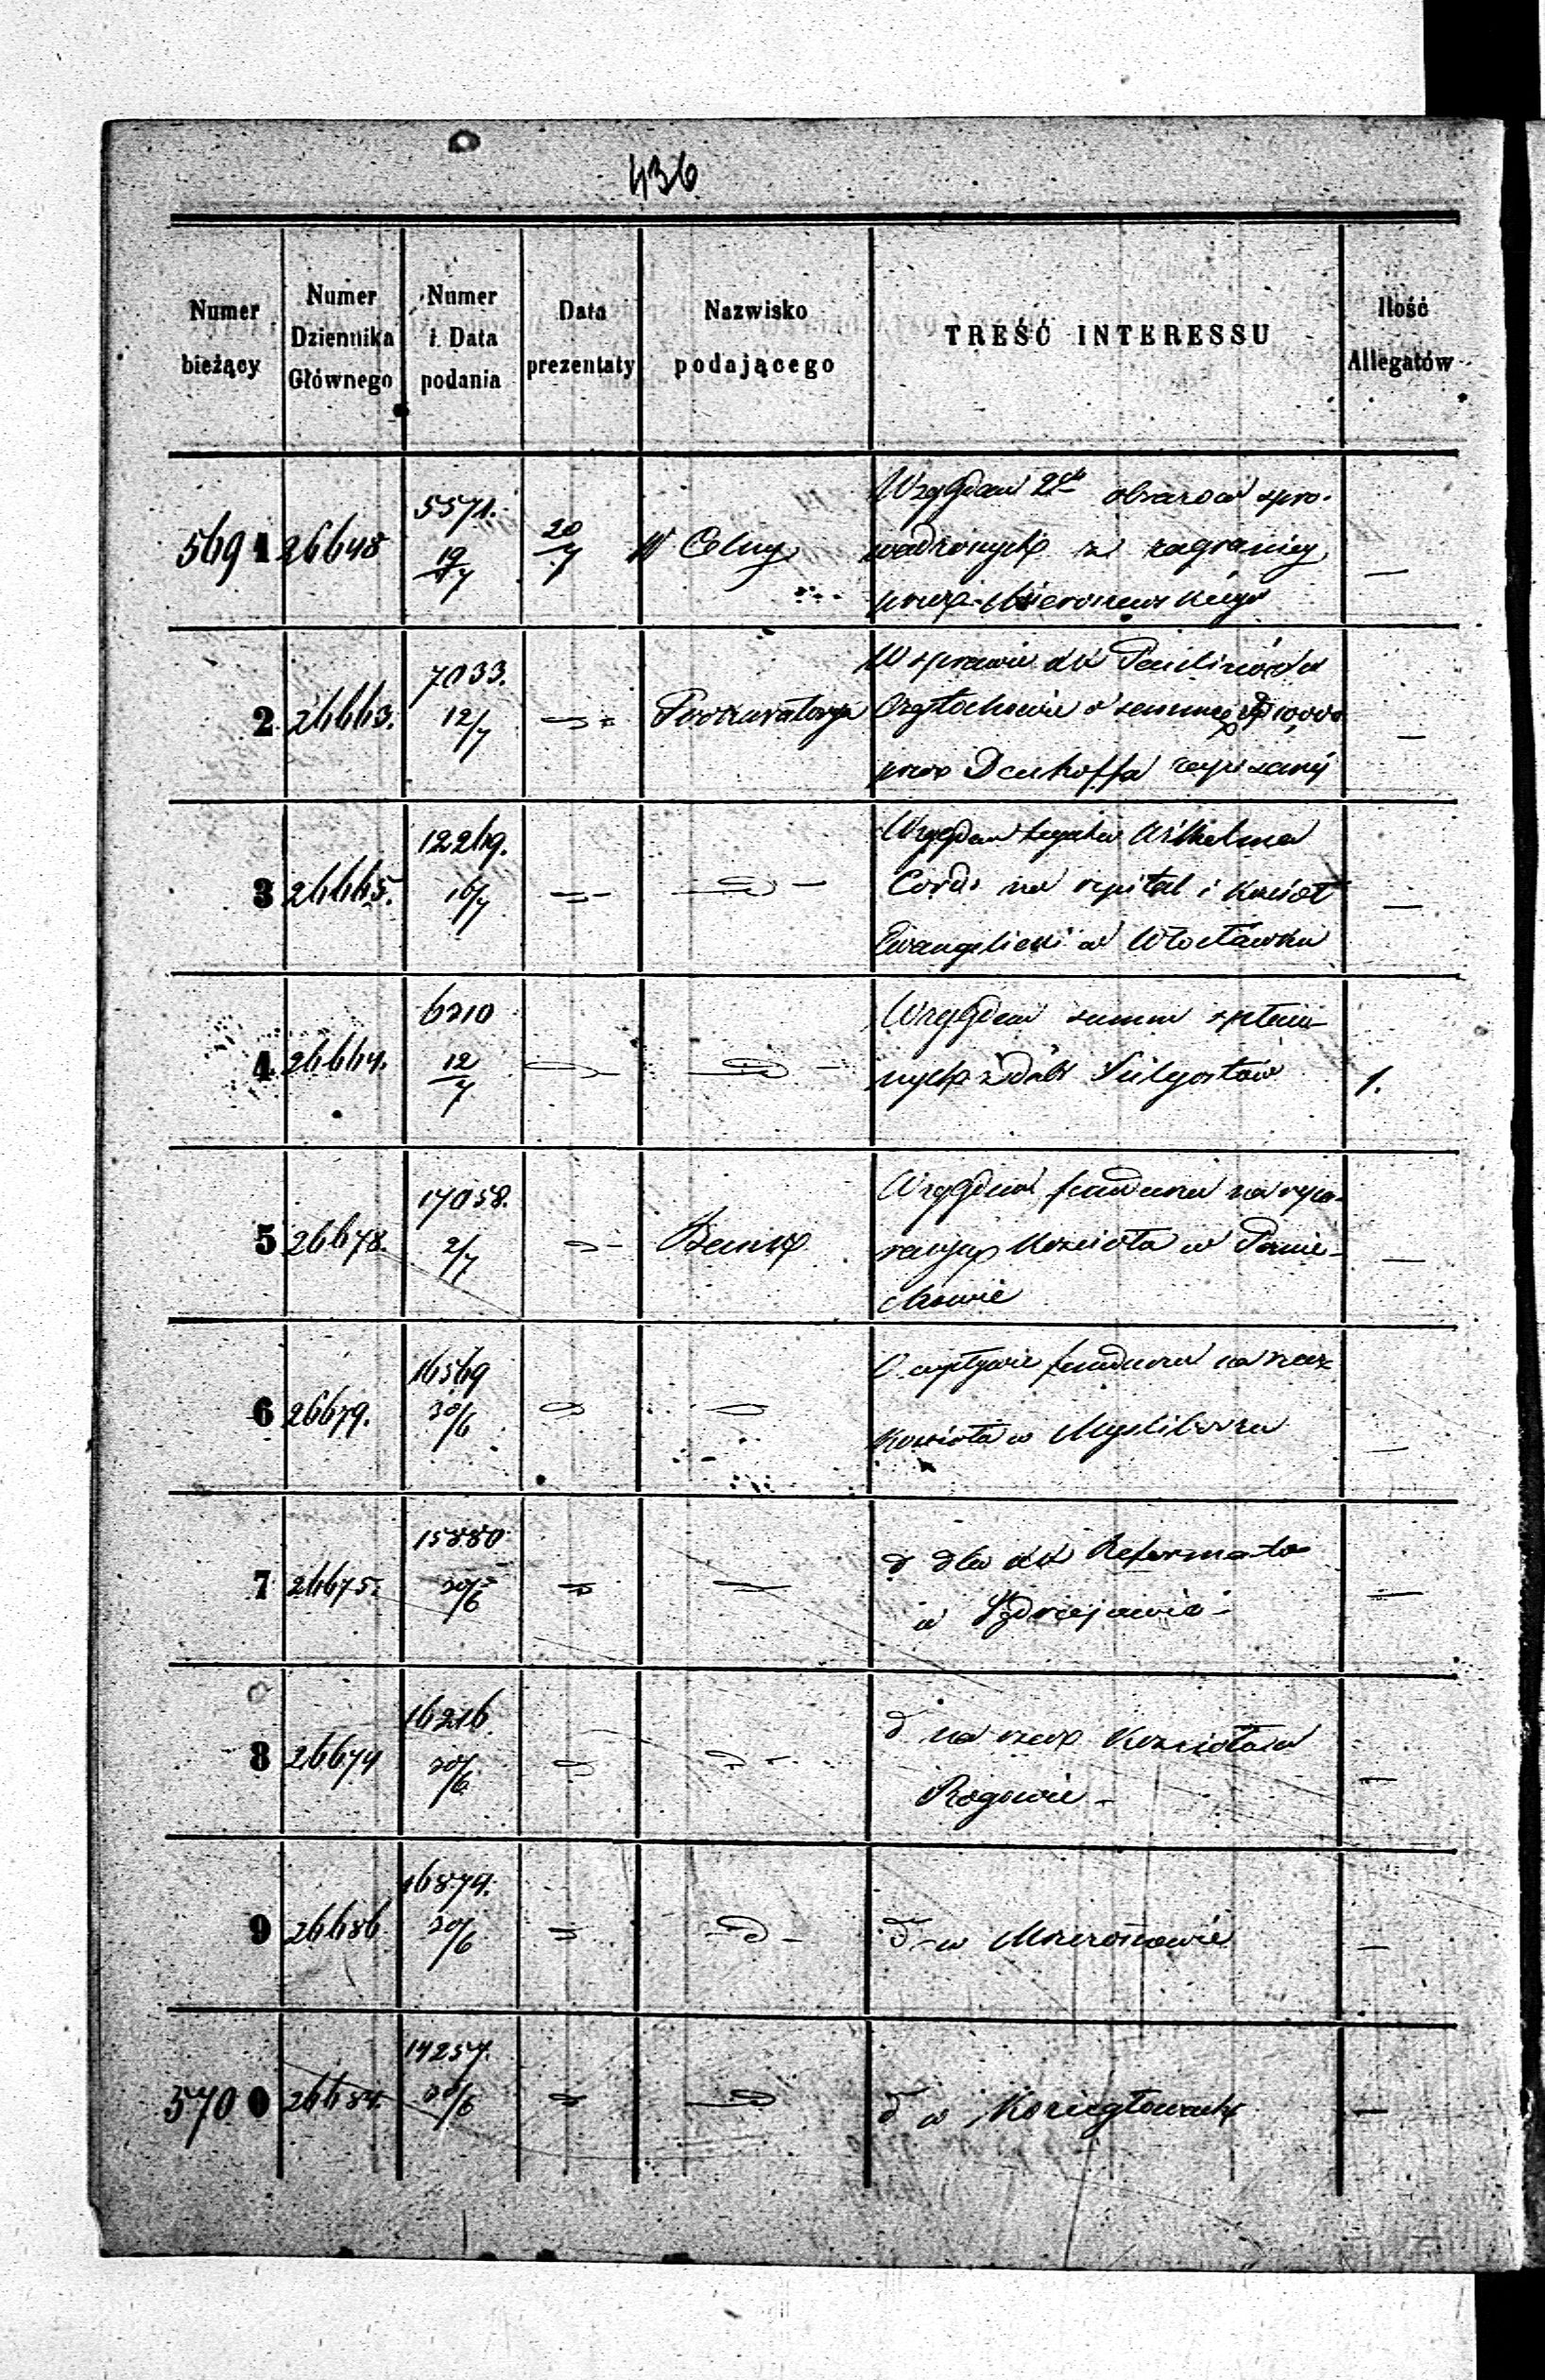 436
Numer bieżący
Numer Dziennika Głównego
Numer i Data podania
Data prezentaty
Nazwisko podającego
TREŚĆ INTERESSU
Ilość Allegatów
5691 26648 5571. 19/7 20/7 W Celny
Względem 2ch obrazów spro-
wadzonych z zagranicy
przez —
2 26663. 7033. 12/7 Prokuratorya
W sprawie XX Paulinów w
Częstochowie o summę
przez Denhoffa zapisaną —
3 26665. 12219. 16/7
Względem legatu Wilhelma
na szpital i Kościół
Ewangelicki w Włocławku —
4 26664. 6210 12/7
Względem summ spłaco-
nych z dóbr 1.
5 26678. 17058. 2/7 Bank
Względem funduszu na repa-
racyą Kościoła w
—
6 26679. 16569 30/6
O wpływie funduszu na rzecz
Kościoła w Myśliborzu —
7 26675. 15880 30/6
d dla XX Reformatów
w —
8 26674 16216 30/6
d na rzecz Kościoła w
Rogowie —
9 26686 16874. 30/6
d w —
5700 26684. 14257. 30/6
d w Koziegłowach —